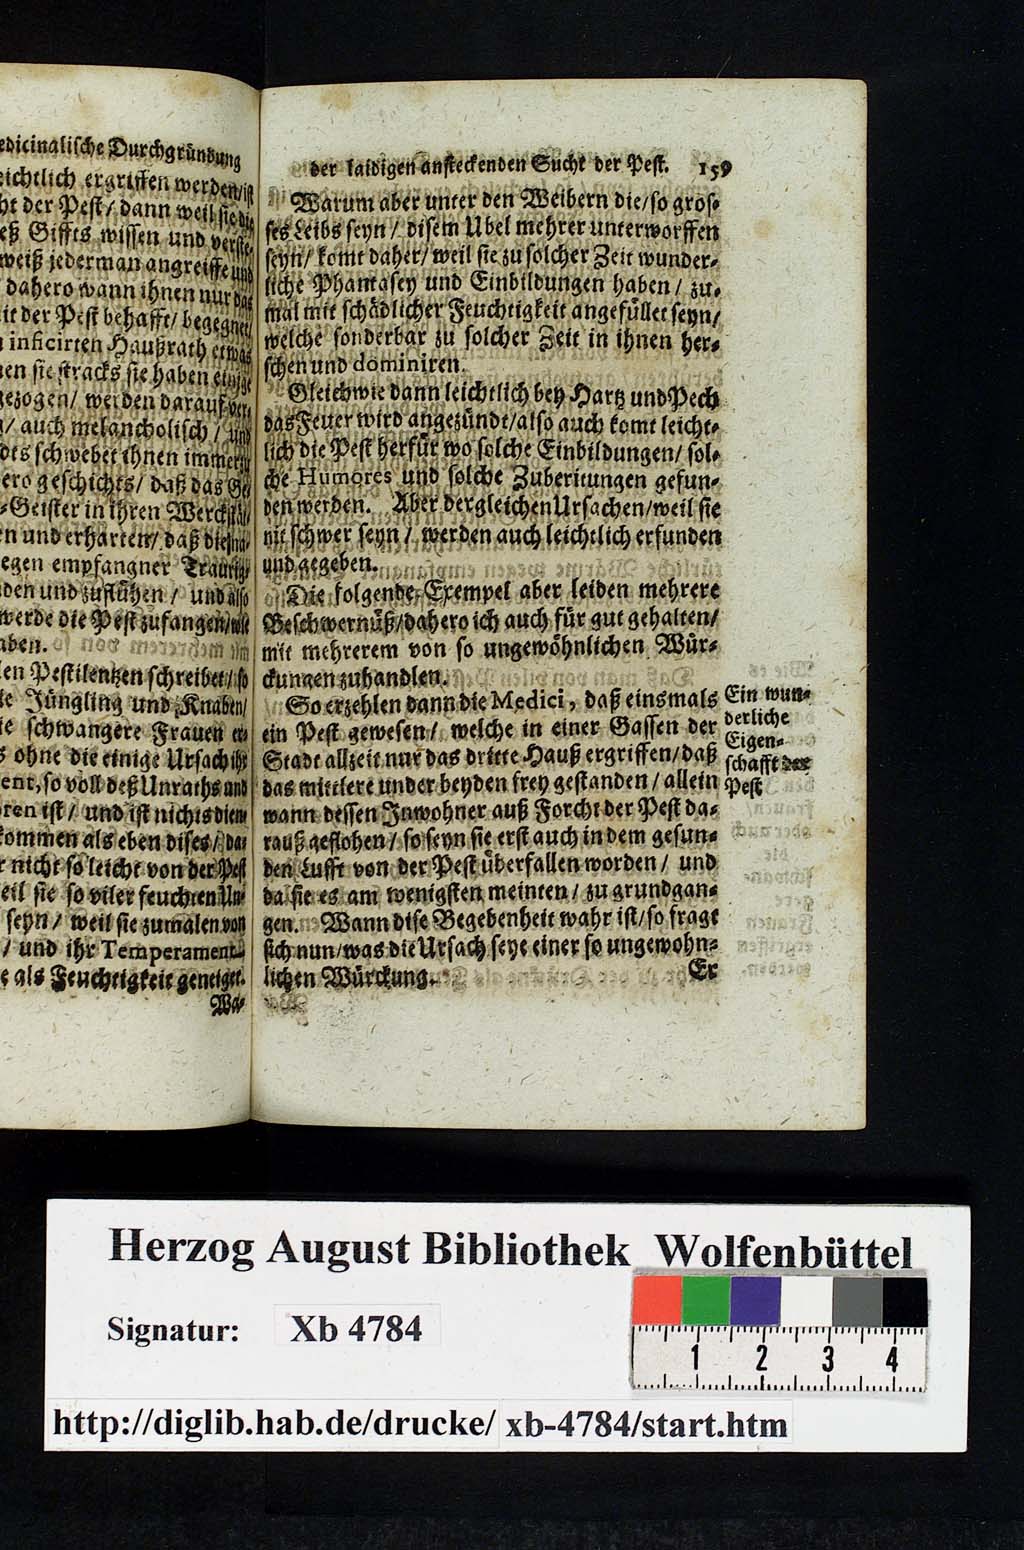 edicinalische Durchgründung
eichtlich ergriffen werden/ist
ht der Pest/ dann weil sie die
eß Giffts wissen und verste-
weiß jederman angreiffe und
dahero wann ihnen nur das
it der Pest behafft/ begegnet/
inficirten Haußrath etwas
en sie stracks sie haben einige
gezogen/ werden darauf ver-
/ auch melancholisch/ und
dts schwebet ihnen immerzu
ero geschichts/ daß das
-Geister in ihren
n und erharten/ daß die
egen empfangner Traurig-
den und zuflühen/ und also
werde die Pest zufangen/wie
aben.
en Pestilentzen schreibet/ so
ie Jüngling und Knaben/
ie schwangere Frauen er-
s ohne die einige Ursach ihr
ent, so voll deß Unraths und
oren ist/ und ist nichts diem
kommen als eben dises/ da-
r nicht so leicht von der Pest
eil sie so viler feuchten Un-
seyn/ weil sie zumalen von
/ und ihr Temperament
e als Feuchtigkeit geneiget.
Wa-
der laidigen ansteckenden Sucht der Pest. 159
Warum aber unter den Weibern die/so gros-
ses Leibs seyn/ disem Ubel mehrer unterworffen
seyn/ komt daher/ weil sie zu solcher Zeit wunder-
liche Phantasey und Einbildungen haben/ zu-
mal mit schädlicher Feuchtigkeit angefüllet seyn/
welche sonderbar zu solcher Zeit in ihnen her-
schen und dominiren.
Gleichwie dann leichtlich bey Hartz und Pech
das Feuer wird angezündt/also auch komt leicht-
lich die Pest herfür wo solche Einbildungen/ sol-
che Humores und solche Zuberitungen gefun-
den werden. Aber dergleichen Ursachen/weil sie
nit schwer seyn/ werden auch leichtlich erfunden
und gegeben.
Die folgende Exempel aber leiden mehrere
Beschwernüß/dahero ich auch für gut gehalten/
mit mehrerem von so ungewöhnlichen Wür-
ckungen zuhandlen.
So erzehlen dann die Medici, daß einsmals
ein Pest gewesen/ welche in einer Gassen der
Stadt allzeit nur das dritte Hauß ergriffen/daß
das mittlere under beyden frey gestanden/ allein
wann dessen Inwohner auß Forcht der Pest da-
rauß geflohen/ so seyn sie erst auch in dem gesun-
den Lufft von der Pest überfallen worden/ und
da sie es am wenigsten meinten/ zu grund gan-
gen. Wann dise Begebenheit wahr ist/so fragt
sich nun/was die Ursach seye einer so ungewohn-
lichen Würckung.
Er
Ein wun-
derliche
Eigen-
schafft der
Pest
Herzog August Bibliothek Wolfenbüttel
Signatur: Xb 4784
1 2 3 4
http://diglib.hab.de/drucke/ xb-4784/start.htm